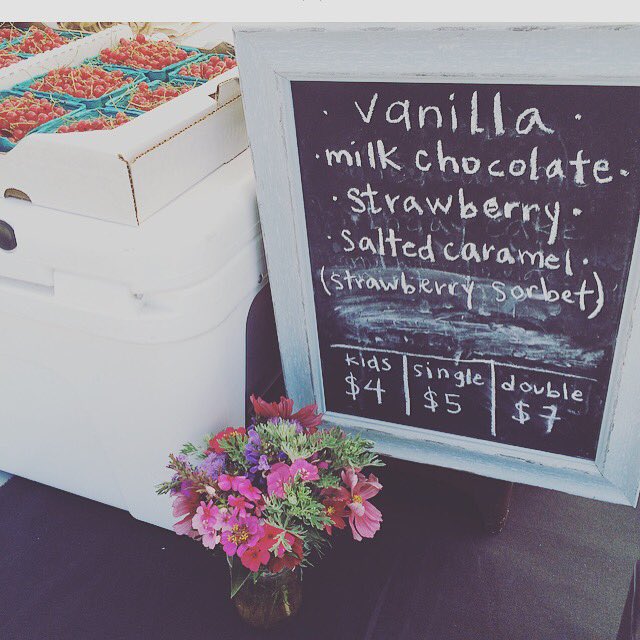 · vanilla ·
· milk chocolate ·
· strawberry ·
· salted caramel ·
(strawberry sorbet)
kids single double
$4 $5 $7